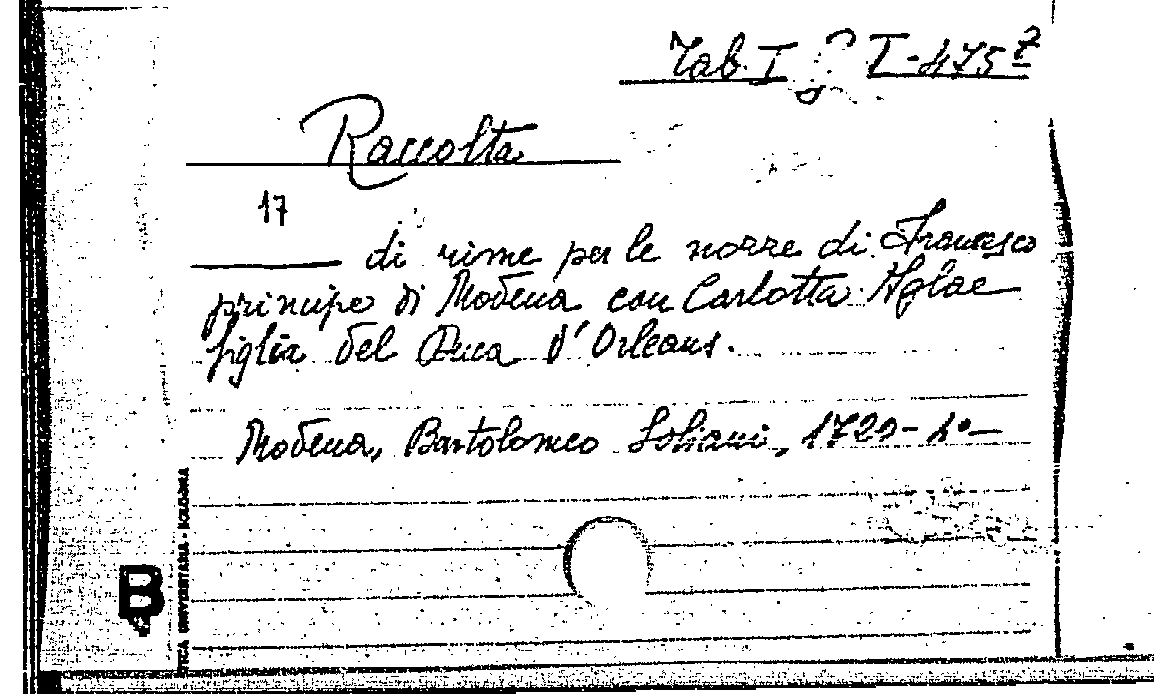 Tab. I I-475 7
Raccolta
17
di rime per le nozze di Francesco
principe di Modena con Carlotta Aglae
figlia del Duca d'Orleans.
Modena, Bartolomeo Soliani, 1720-4°-
B
TICA UNIVERSITARIA - BOLOGNA